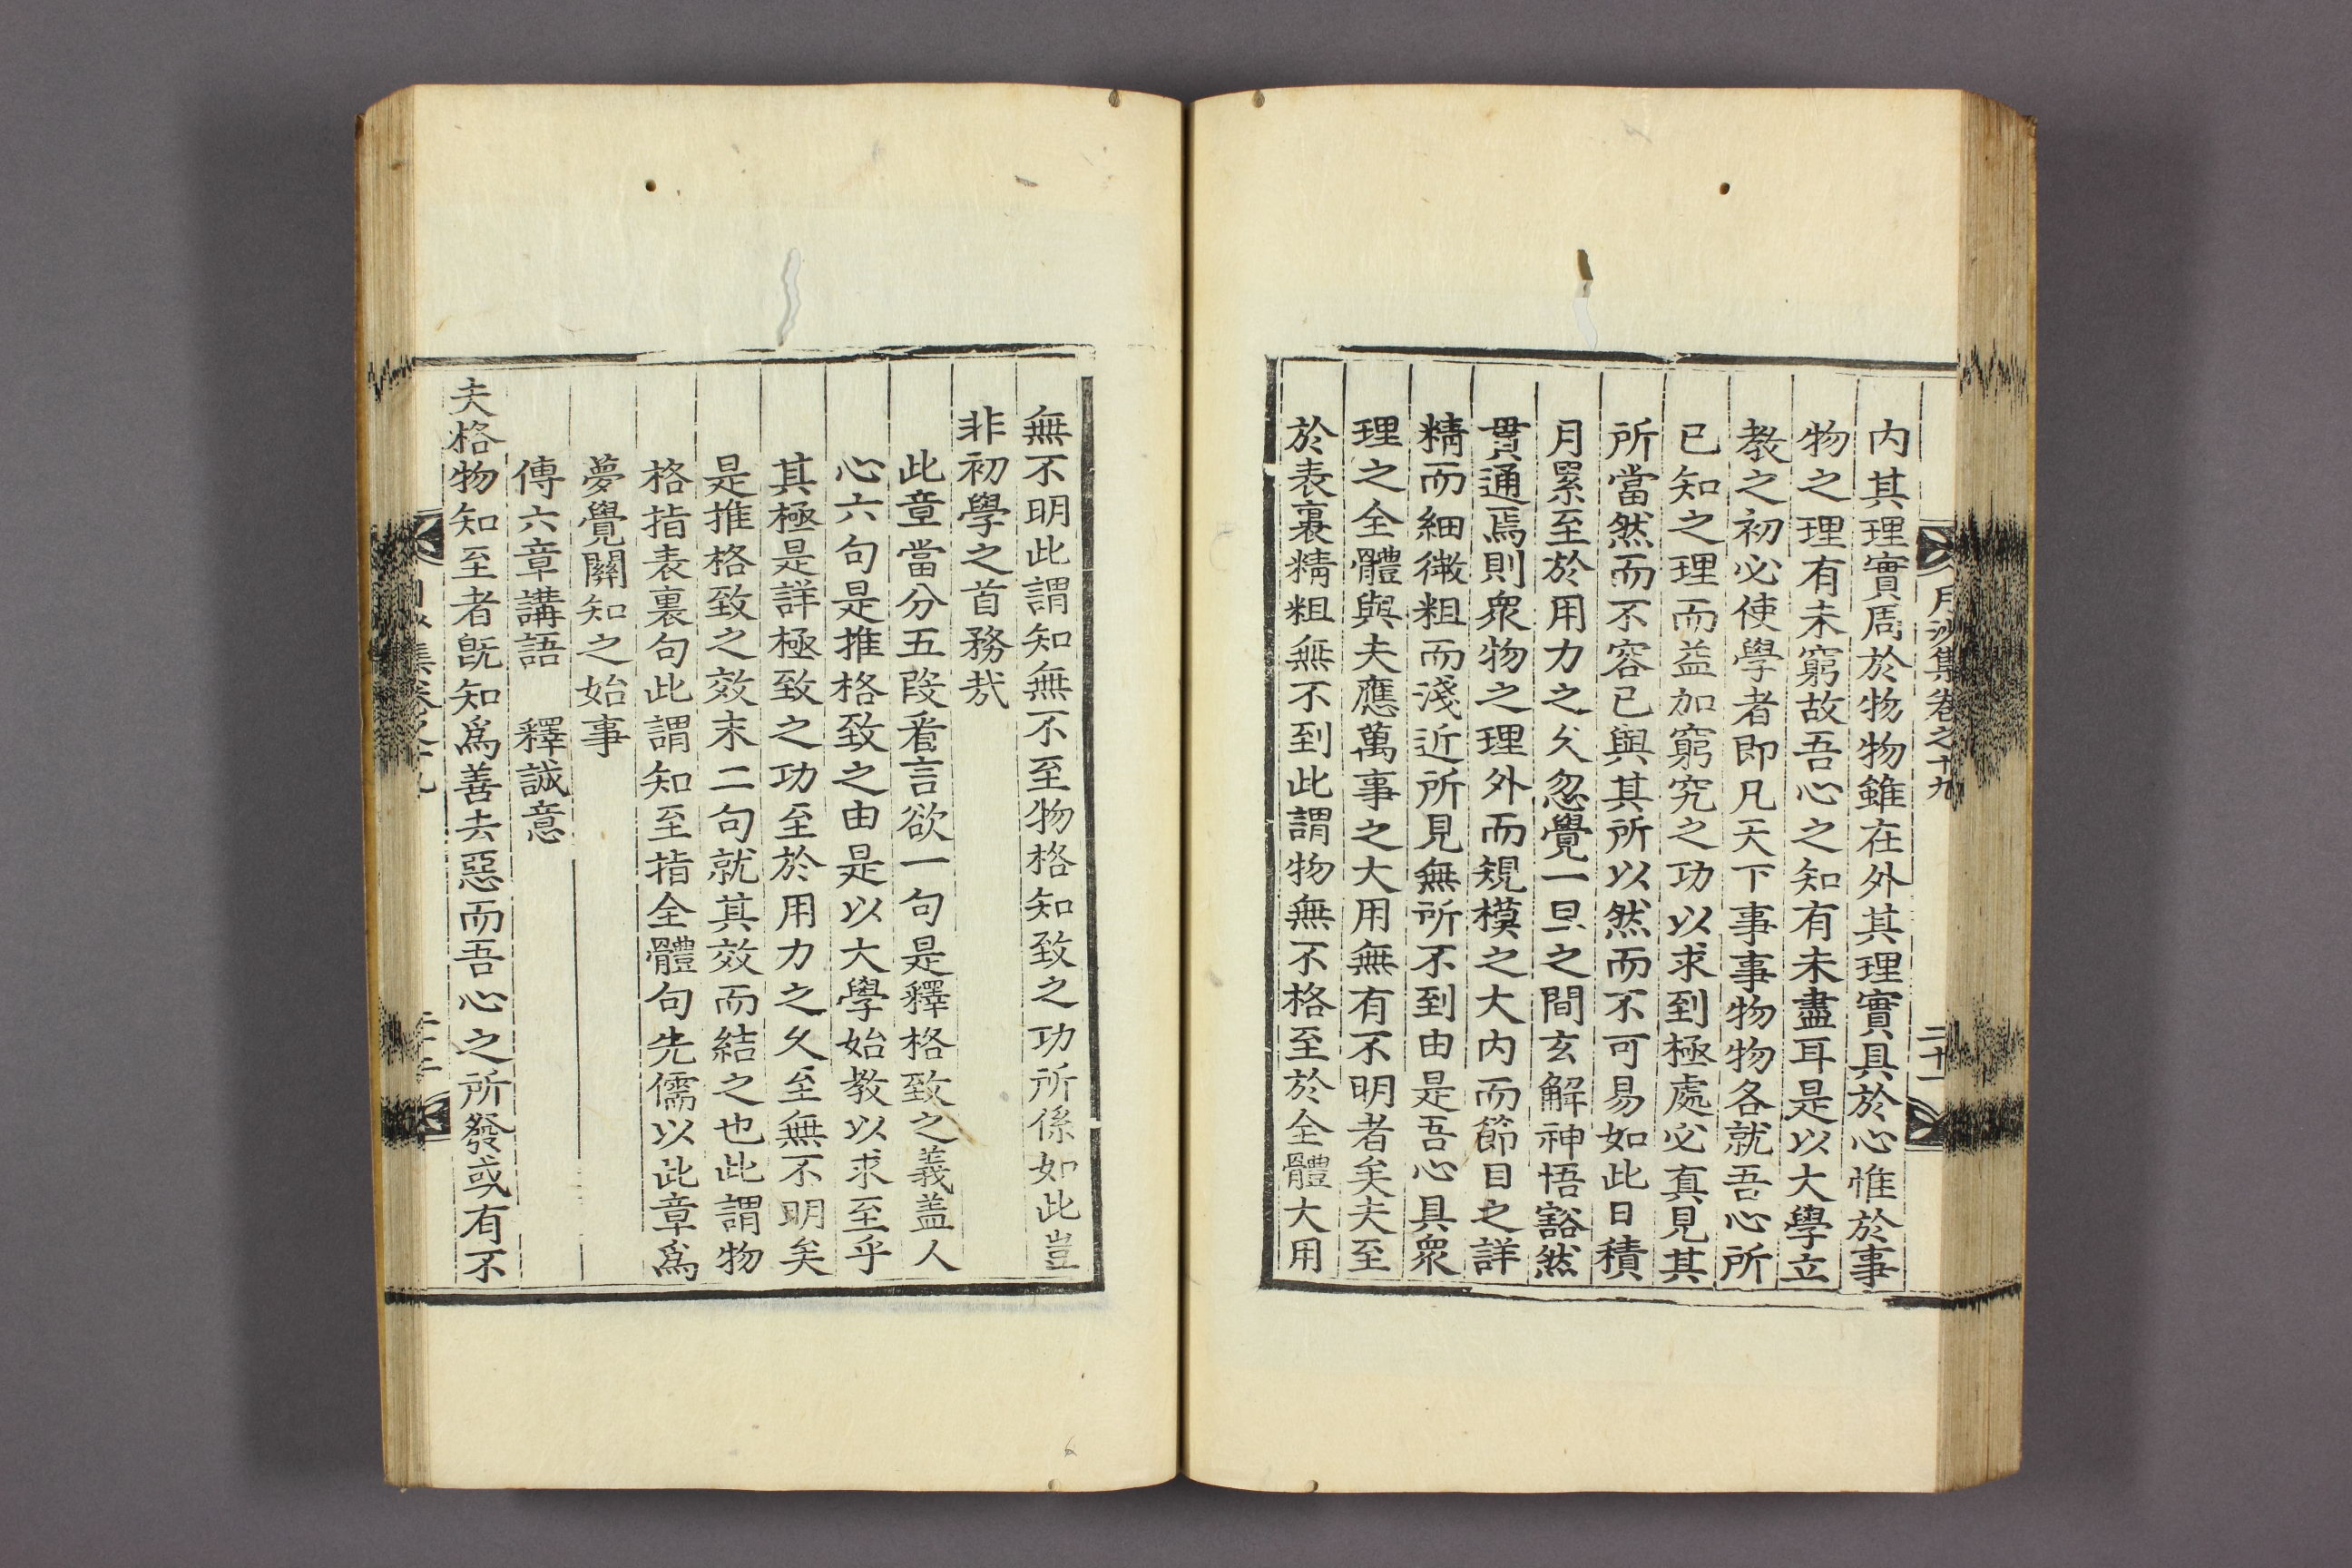 月沙集卷之十九
二十一
内其理實周於物物雖在外其理實具於心惟於事
物之理有未窮故吾心之知有未盡耳是以大學立
教之初必使學者即凡天下事事物物各就吾心所
已知之理而益加窮究之功以求到極處必真見其
所當然而不容已與其所以然而不可易如此日積
月累至於用力之久忽覺一旦之間玄解神悟豁然
貫通焉則衆物之理外而規模之大内而節目之詳
精而細微粗而淺近所見無所不到由是吾心具衆
理之全體與夫應萬事之大用無有不明者矣夫至
於表裏精粗無不到此謂物無不格至於全體大用
無不明此謂知無不至物格知致之功所係如此豈
非初學之首務㢤
此章當分五段看言欲一句是釋格致之義盖人
心六句是推格致之由是以大學始教以求至乎
其極是詳極致之功至於用力之久至無不明矣
是推格致之效末二句就其效而結之也此謂物
格指表裏句此謂知至指全體句先儒以此章爲
夢覺關知之始事
傳六章講語　釋誠意
夫格物知至者旣知爲善去惡而吾心之所發或有不